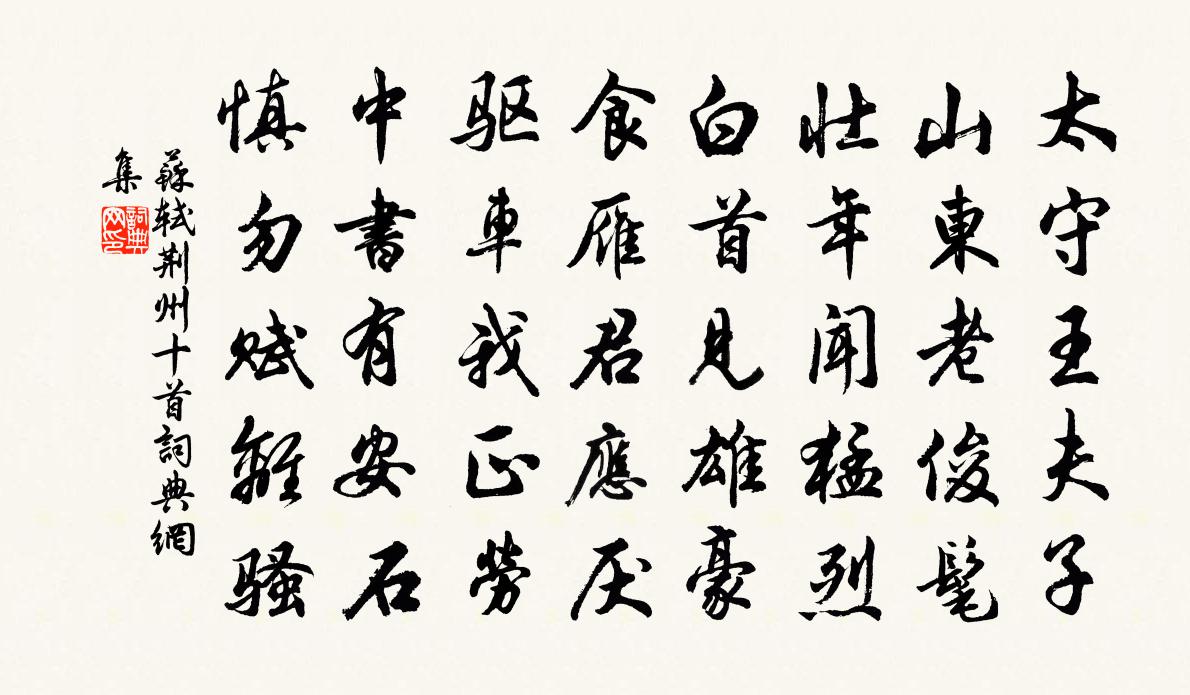 太守王夫子
山東老俊髦
壯年聞猛烈
白首見雄豪
食雁君應厌
驱車我正勞
中書有安石
慎勿赋離骚
蘇轼荆州十首詞典網
集
詞典
网印